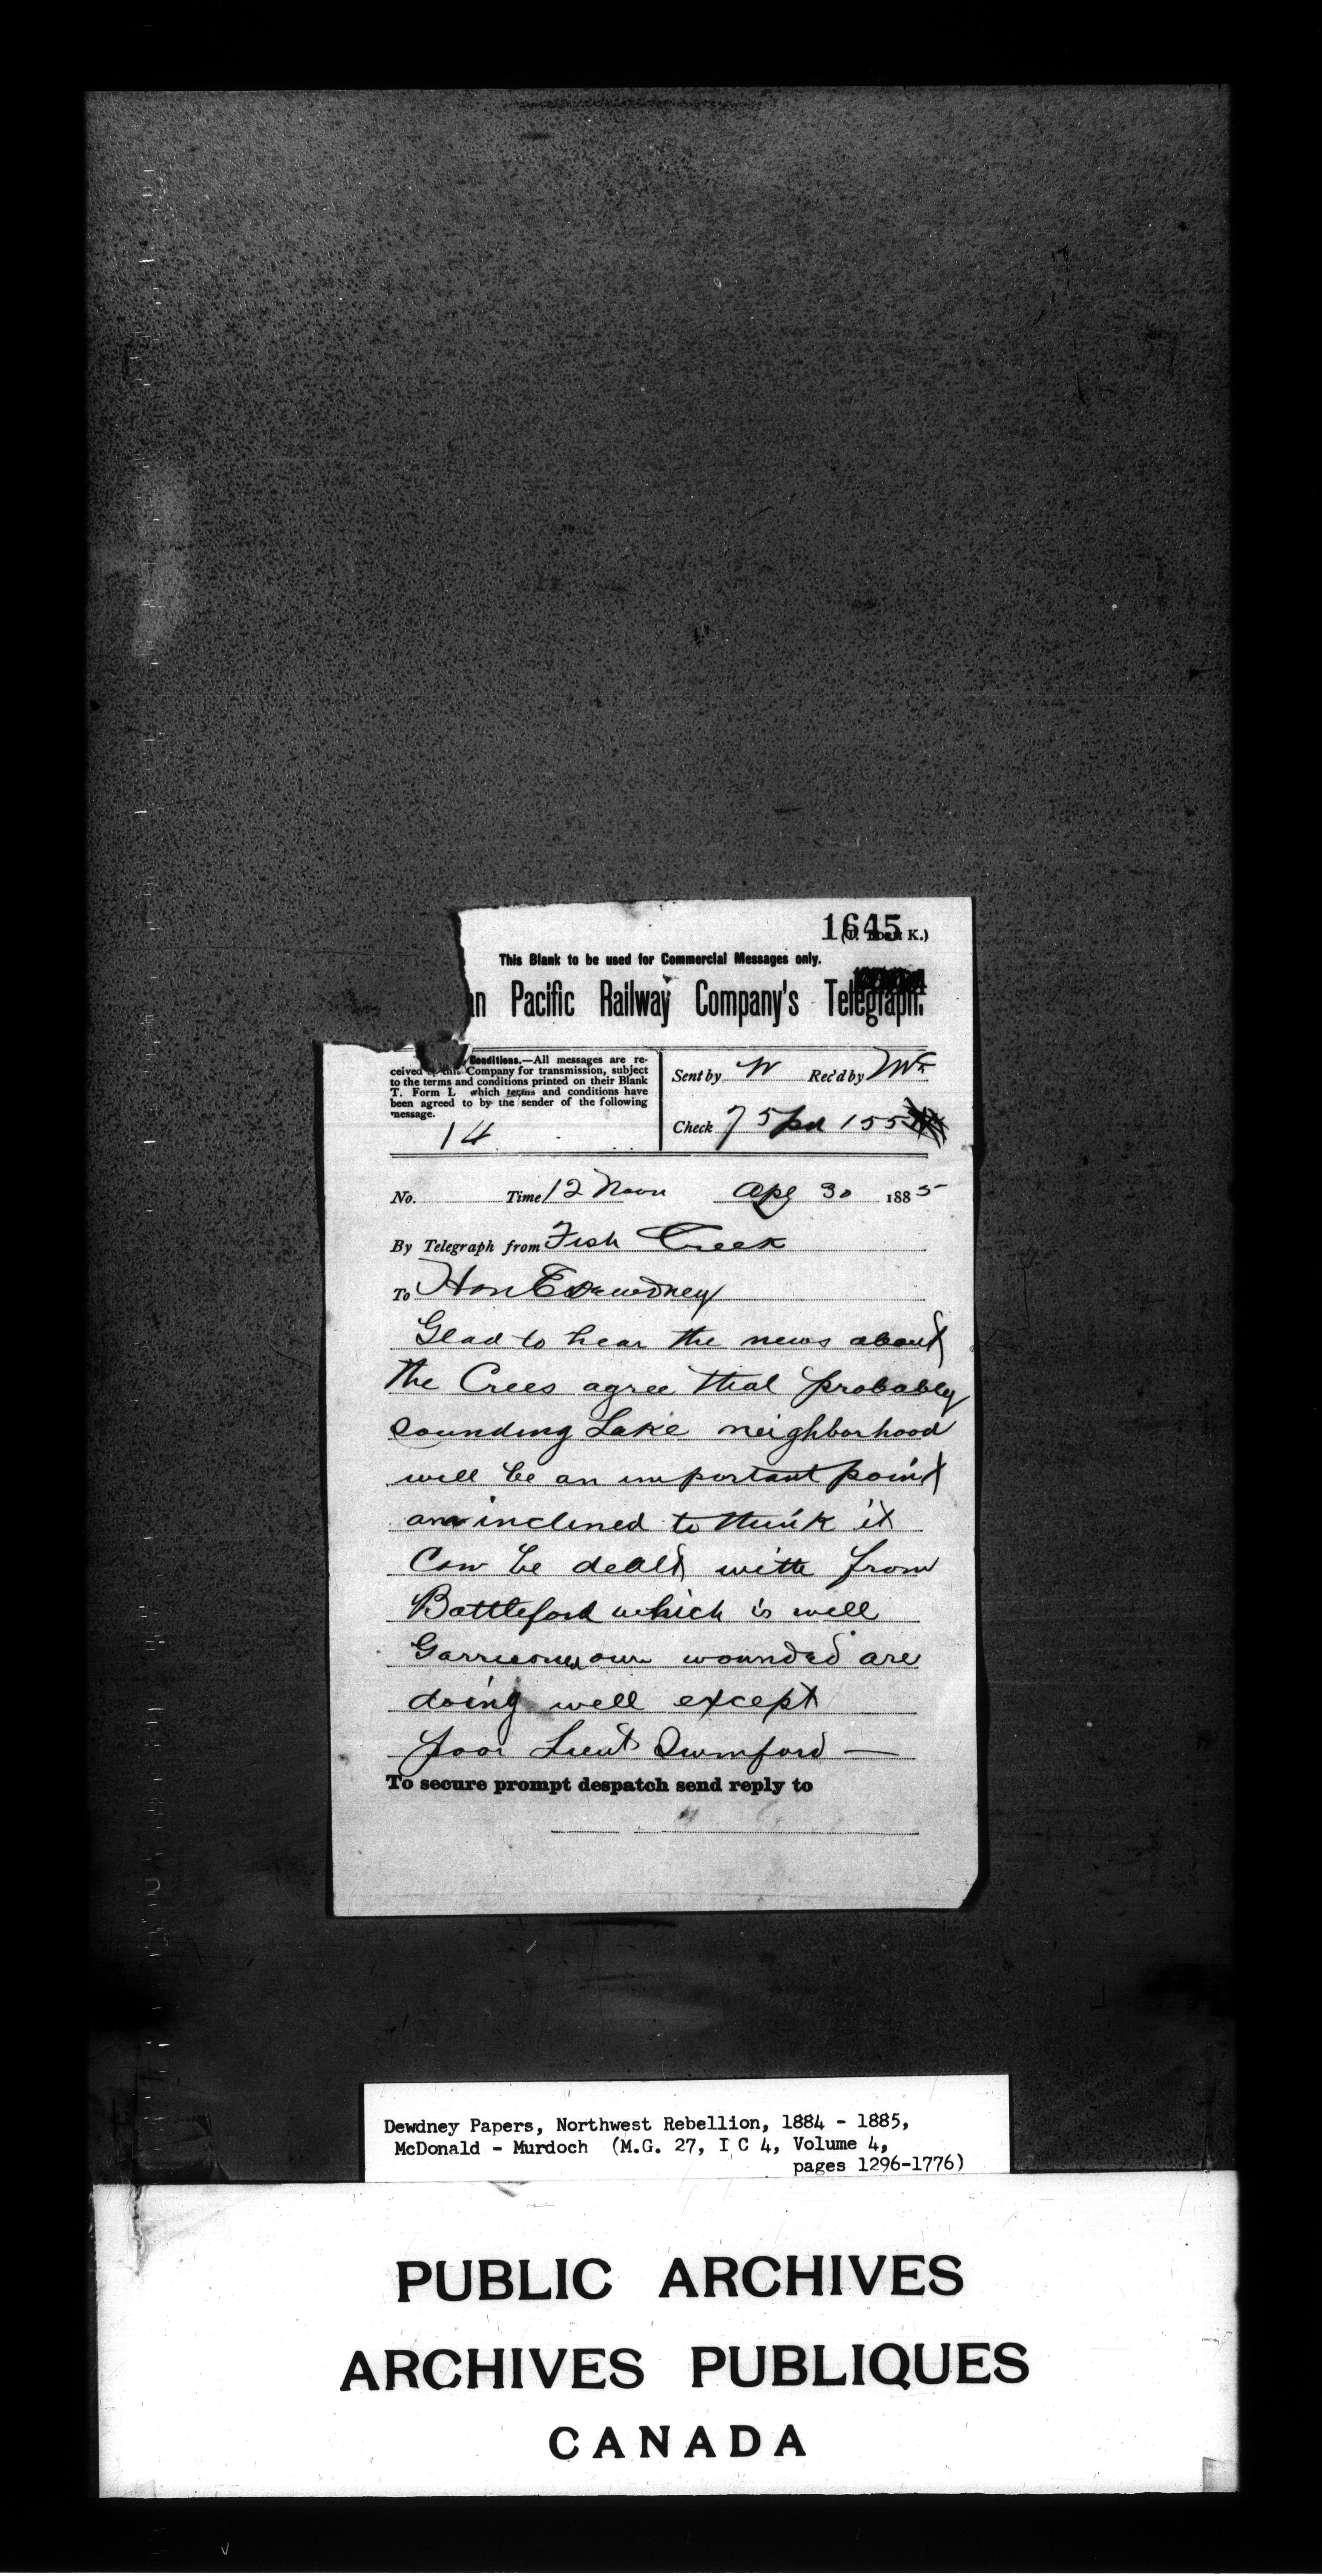 1645
K.)
This Blank to be used for Commercial Messages only.
an Pacific Railway Company's Telegraph.
Conditions.—All messages are re-
ceived by this Company for transmission, subject
to the terms and conditions printed on their Blank
T. Form L which terms and conditions have
been agreed to by the sender of the following
message.
14
Sent by W Rec'd by
Check 75 pd 155
No. Time 12 Noon Apl 30 1885
By Telegraph from Fish Creek
To Hon E Dewdney
Glad to hear the news about
the Crees agree that probably
Sounding Lake neighborhood
will be an important point
am inclined to think it
Can be dealt with from
Battleford which is well
Garrisoned our wounded are
doing well except
poor Lieut Swinford —
To secure prompt despatch send reply to
Dewdney Papers, Northwest Rebellion, 1884 - 1885,
McDonald - Murdoch (M.G. 27, I C 4, Volume 4,
pages 1296-1776)
PUBLIC ARCHIVES
ARCHIVES PUBLIQUES
CANADA